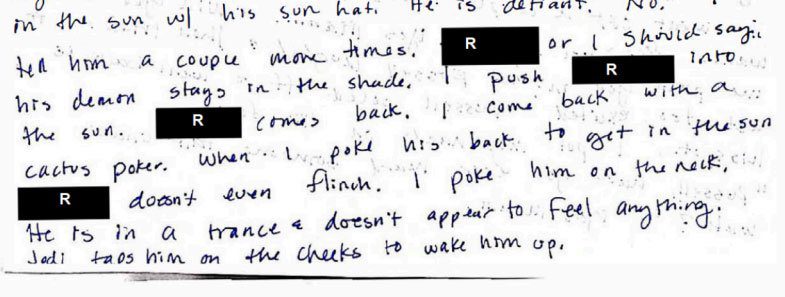 in the sun w/ his sun hat. He is defiant. No.
tell him a couple more times. R or I should say,
his demon stays in the shade. I push R into
the sun. R comes back. I come back with a
cactus poker. When I poke his back to get in the sun
R doesn't even flinch. I poke him on the neck.
He is in a trance & doesn't appear to feel anything.
Jodi taps him on the cheeks to wake him up.